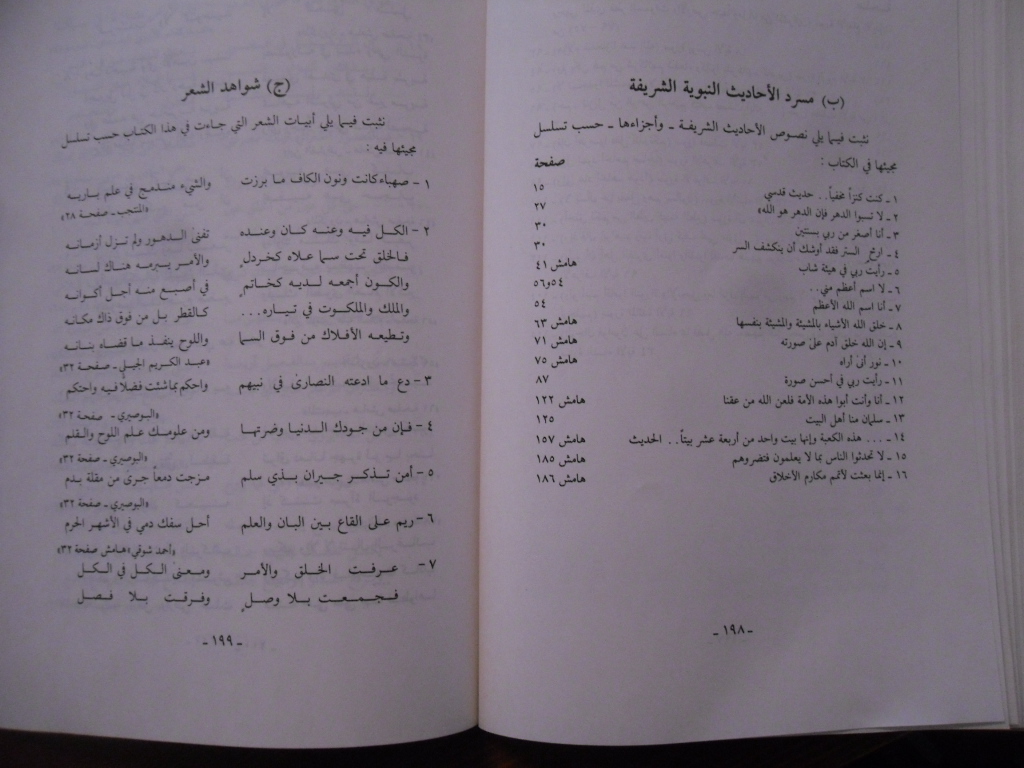 (ب) مسرد الأحاديث النبوية الشريفة
نثبت فيما يلي نصوص الأحاديث الشريفة ـ وأجزاءها ـ حسب تسلسل
مجيئها في الكتاب : صفحة
١ ـ كنت كنزاً مخفياً.. حديث قدسي ١٥
٢ ـ لا تسبوا الدهر فإن الدهر هو الله» ٢٧
٣ ـ أنا أصغر من ربي بسنتين ٣٠
٤ ـ ارخ الستر فقد أوشك أن ينكشف السر ٣٠
٥ ـ رأيت ربي في هيئة شاب هامش ٤١
٦ ـ لا اسم أعظم مني.. ٥٤و٥٦
٧ ـ أنا اسم الله الأعظم ٥٤
٨ ـ خلق الله الأشياء بالمشيئة والمشيئة بنفسها هامش ٦٣
٩ ـ إن الله خلق آدم على صورته هامش ٧١
١٠ ـ نور أنى أراه هامش ٧٥
١١ ـ رأيت ربي في أحسن صورة ٨٧
١٢ ـ أنا وأنت أبوا هذه الأمة فلعن الله من عقنا هامش ١٢٢
١٣ ـ سلمان منا أهل البيت ١٢٥
١٤ ـ ... هذه الكعبة وإنها بيت واحد من أربعة عشر بيتاً.. الحديث هامش ١٥٧
١٥ ـ لا تحدثوا الناس بما لا يعلمون فتضروهم هامش ١٨٥
١٦ ـ إنما بعثت لأتمم مكارم الأخلاق هامش ١٨٦
ـ ١٩٨ ـ
(ج) شواهد الشعر
نثبت فيما يلي أبيات الشعر التي جاءت في هذا الكتاب حسب تسلسل
مجيئها فيه :
١ ـ صهباء كانت ونون الكاف ما برزت والشيء مندمج في علم باريه
«المنتجب ـ صفحة ٢٨»
٢ ـ الكل فيه وعنه كان وعنده تفنى الدهور ولم تزل أزمانه
فالخلق تحت سما علاه كخردل والأمر يبرمه هناك لسانه
والكون أجمعه لديه كخاتم في أصبع منه أجل أكوانه
والملك والملكوت في تياره... كالقطر بل من فوق ذاك مكانه
وتطيعه الأفلاك من فوق السما واللوح ينفذ ما قضاه بنانه
«عبد الكريم الجيلي ـ صفحة ٣٢»
٣ ـ دع ما ادعته النصارى في نبيهم واحكم بما شئت فضلاً فيه واحتكم
«البوصيري ـ صفحة ٣٢»
٤ ـ فإن من جودك الدنيا وضرتها ومن علومك علم اللوح والقلم
«البوصيري ـ صفحة ٣٢»
٥ ـ أمن تذكر جيران بذي سلم مزجت دمعاً جرى من مقلة بدم
«البوصيري ـ صفحة ٣٢»
٦ ـ ريم على القاع بين البان والعلم أحل سفك دمي في الأشهر الحرم
«أحمد شوقي» هامش صفحة ٣٢»
٧ ـ عرفت الخلق والأمر ومعنى الكل في الكل
فجمعت بلا وصل وفرقت بلا فصل
ـ ١٩٩ ـ